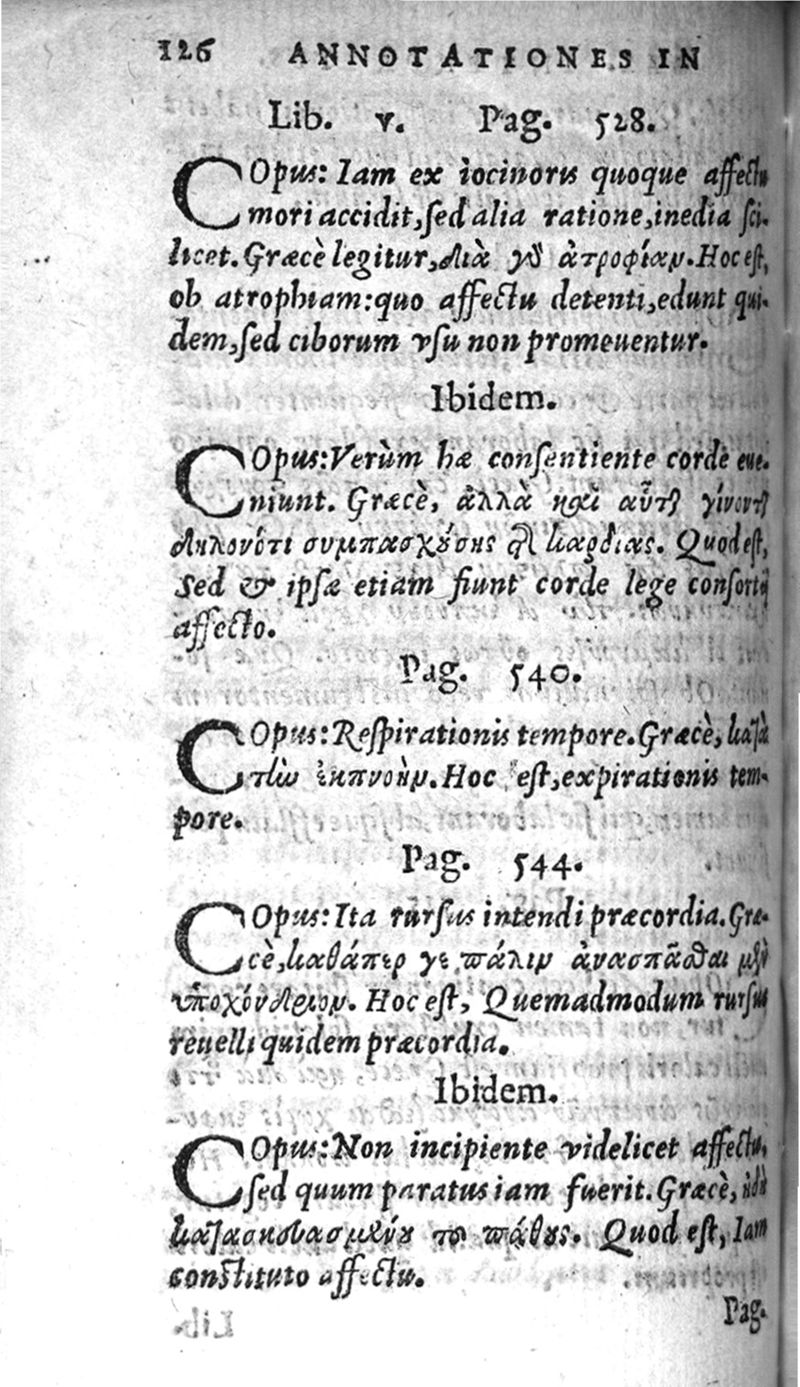 126 ANNOTATIONES IN
Lib. v. Pag. 528.
COpus: Iam ex iocinoris quoque affectu
mori accidit, sed alia ratione, inedia sci-
licet. Græcè legitur, διὰ γὸ ἀτροφίαν. Hoc est,
ob atrophiam: quo affectu detenti, edunt qui-
dem, sed ciborum vsu non promouentur.
Ibidem.
COpus: Verùm hæ consentiente corde eue-
niunt. Græcè, ἀλλὰ καὶ αὗται γίνονται
δηλονότι συμπασχούσης τῆς καρδίας. Quod est,
Sed & ipsæ etiam fiunt corde lege consortij
affecto.
Pag. 540.
COpus: Respirationis tempore. Græcè, κατὰ
τὴν ἐκπνοὴν. Hoc est, expirationis tem-
pore.
Pag. 544.
COpus: Ita rursus intendi præcordia. Græ-
cè, καθάπερ γε πάλιν ἀνασπᾶσθαι μὲν
ὑποχόνδριον. Hoc est, Quemadmodum rursus
reuelli quidem præcordia.
Ibidem.
COpus: Non incipiente videlicet affectu,
sed quum paratus iam fuerit. Græcè, ἤδη
κατασκευασμένου τοῦ πάθους. Quod est, Iam
constituto affectu.
Pag.